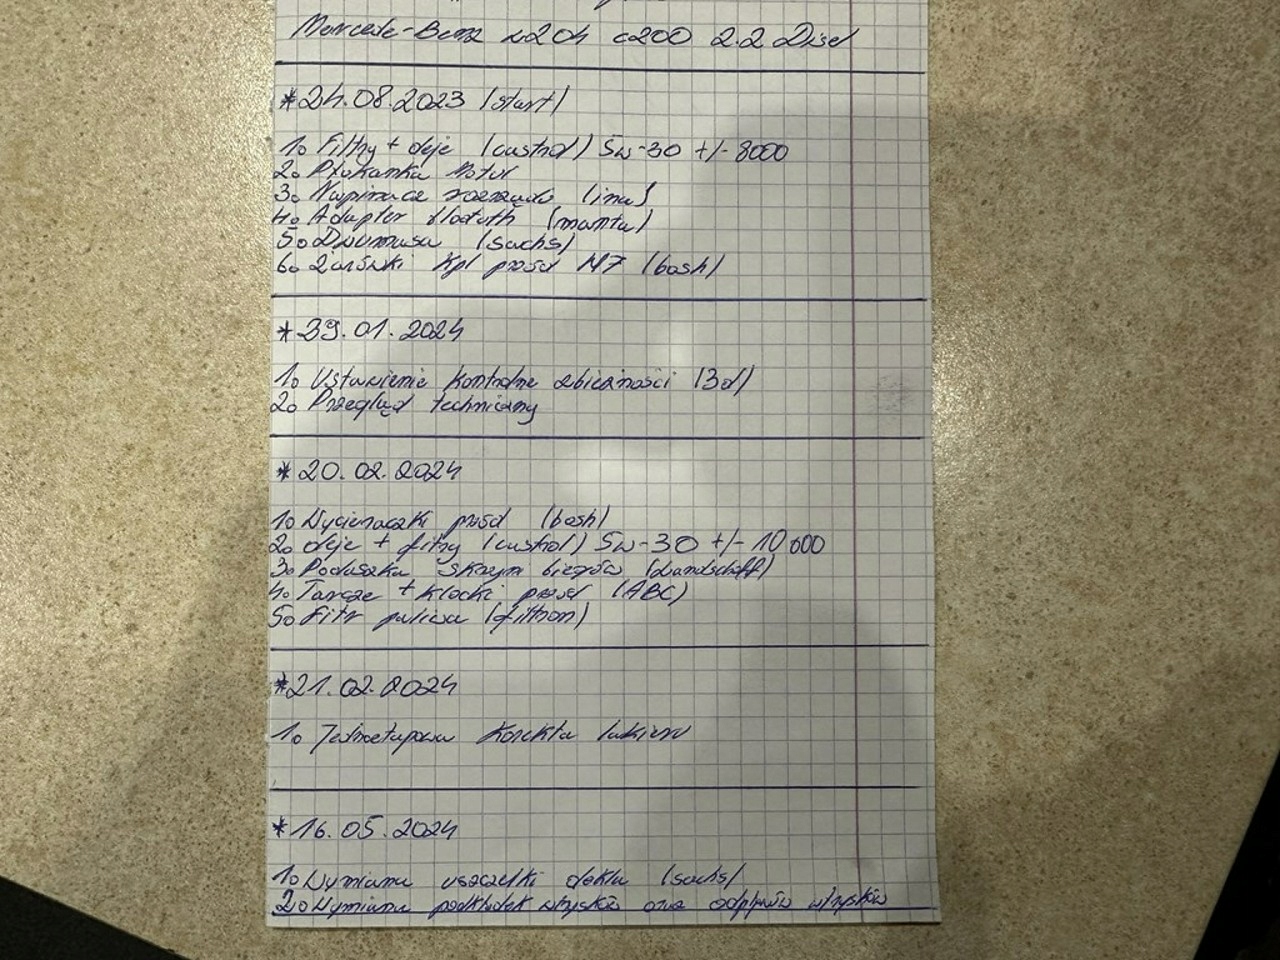 Mercede-Benz w204 c200 2.2 Disel
*24.08.2023 (start)
1. Filtry + oleje (castrol) 5w-30 +/- 8000
2. Płukanka Motul
3. Napinacz rozrządu (ina)
4. Adapter (manta)
5. Dwumasa (sachs)
6. Żarówki kpl przód H7 (bosh)
*29.01.2024
1. Ustawienie kontrolne zbieżności (3d)
2. Przegląd techniczny
*20.02.2024
1. Wycieraczki przód (bosh)
2. oleje + filtry (castrol) 5w-30 +/- 10 000
3. Poduszka skrzyni biegów
4. Tarcze + klocki przód (ABC)
5. Filtr paliwa (filtron)
*21.02.2024
1. Jednoetapowa korekta lakieru
*16.05.2024
1. Wymiana uszczelki dekla (sachs)
2. Wymiana podkładek wtrysków oraz odpływów wtrysków